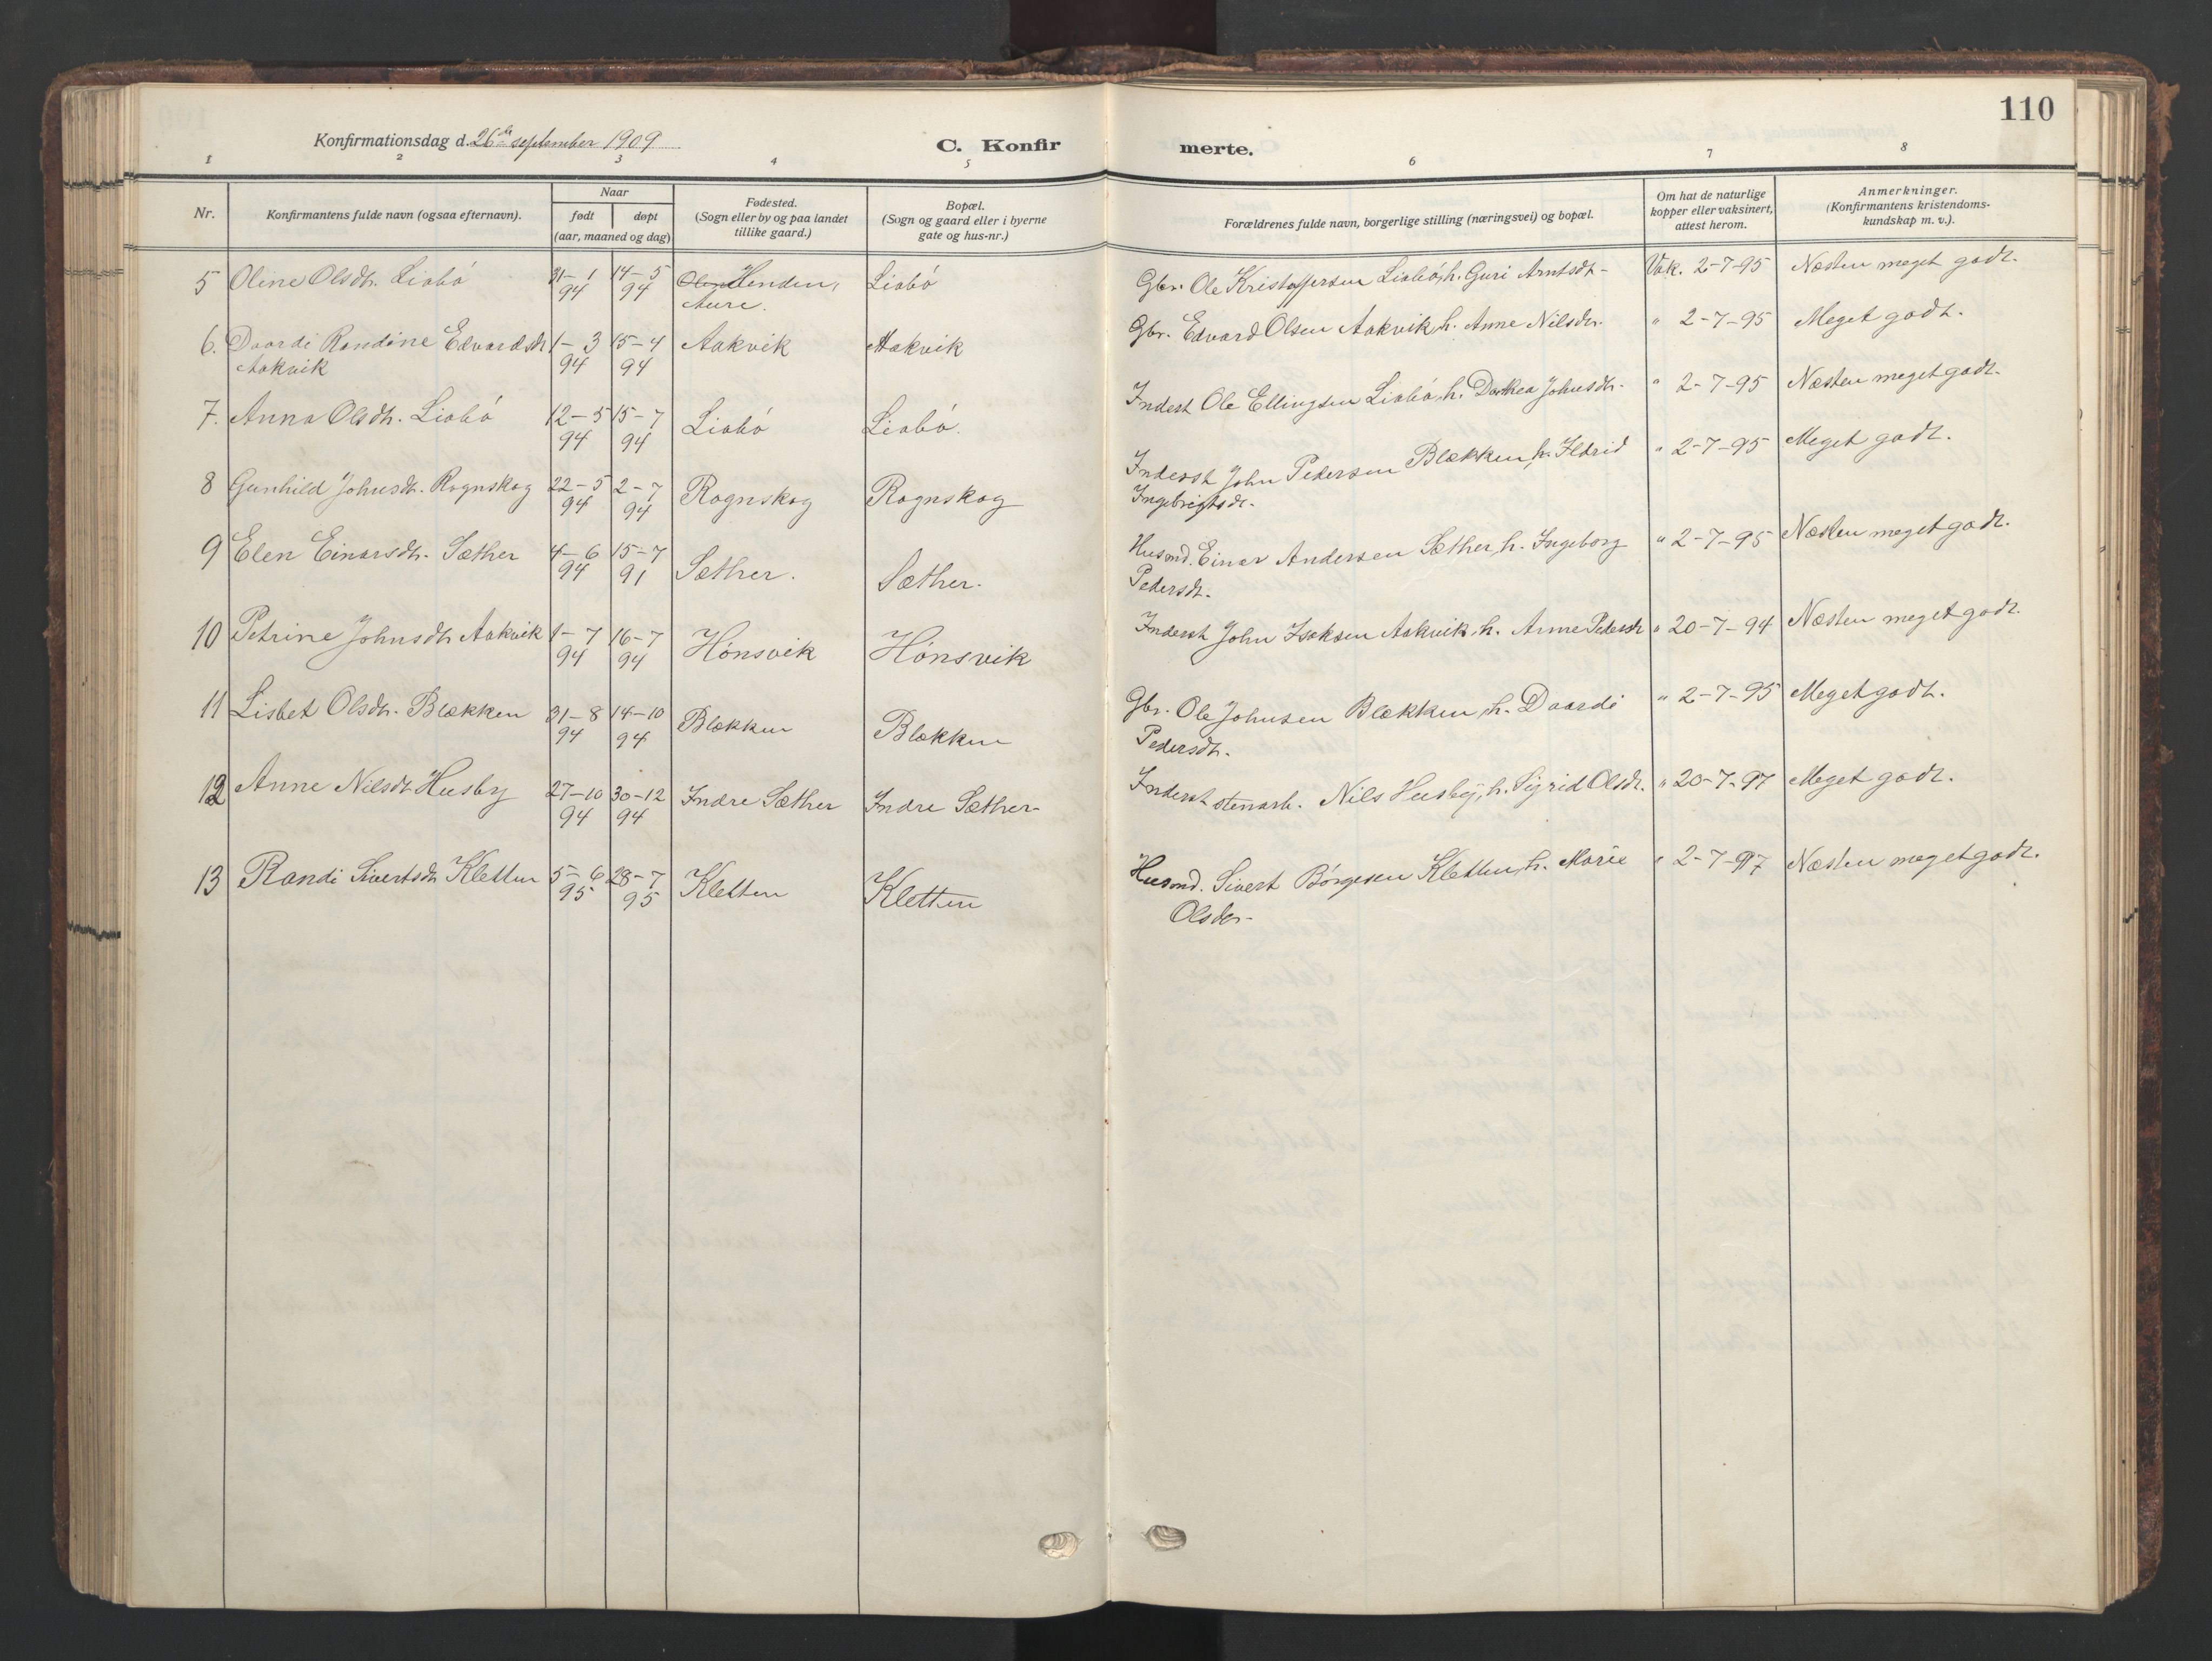 110
Konfirmationsdag d. 26de september 1909
C. Konfir merte.
1 2 3 4 5 6 7 8
Nr.
Konfirmantens fulde navn (ogsaa efternavn).
Naar
født døpt
(aar, maaned og dag)
Fødested.
(Sogn eller by og paa landet
tillike gaard.)
Bopæl.
(Sogn og gaard eller i byerne
gate og hus-nr.)
Forældrenes fulde navn, borgerlige stilling (næringsvei) og bopæl.
Om hat de naturlige
kopper eller vaksinert,
attest herom.
Anmerkninger.
(Konfirmantens kristendoms-
kundskap m. v.).
5 Oline Olsdtr. Liabó 31-1 14-5 Henden, Liabó Gbr. Ole Kristoffersen Liabó, h. Guri Arntsdtr- Vak. 2-7-95 Næsten meget godt.
94 94 Aure.
6. Daardi Randine Edvardsdtr 1-3 15-4 Aakvik Aakvik Gbr. Edvard Olsen Aakvik, h. Anne Nilsdtr. " 2-7-95 Meget godt.
Aakvik 94 94
7. Anna Olsdtr. Liabó 12-5 15-7 Liabó Liabó. Inderst Ole Ellingsen Liabó, h. Dorkea Johnsdtr. " 2-7-95 Næsten meget godt.
94 94
8 Gunhild Johnsdtr. Rognskog 22-5 2-7 Rognskog Rognskog Inderst John Pedersen Blækken, h. Ildrid " 2-7-95 Meget godt.
94 94 Ingebrigtsdtr.
9 Elen Einarsdtr. Sæther 4-6 15-7 Sæther. Sæther. Husmd. Einar Andersen Sæther, h. Ingeborg " 2-7-95 Næsten meget godt.
94 91 Pedersdtr.
10 Petrine Johnsdtr Aakvik 1-7 16-7 Hónsvik Hónsvik Inderst John Isaksen Aakvik, h. Anne Pedersdtr " 20-7-94 Næsten meget godt.
94 94
11 Lisbet Olsdtr. Blækken 31-8 14-10 Blækken Blækken Gbr. Ole Johnsen Blækken, h. Daardi " 2-7-95 Meget godt.
94 94 Pedersdtr.
12 Anne Nilsdtr Husby 27-10 30-12 Indre Sæther Indre Sæther- Inderst stenarb. Nils Husby, h. Sigrid Olsdtr. " 20-7-97 Meget godt.
94 94
13 Randi Sivertsdtr Kletten 5-6 28-7 Kletten Kletten Husmd. Sivert Börgesen Kletten, h. Marie " 2-7-97 Næsten meget godt.
95 95 Olsdtr-